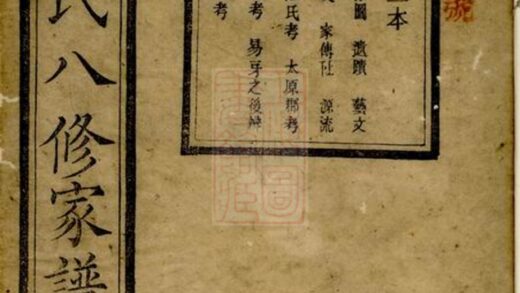 氏八修家譜
上本
圖 遺蹟 藝文
家傳社 源流
氏考 太原郡考
考 易牙之後辨
考